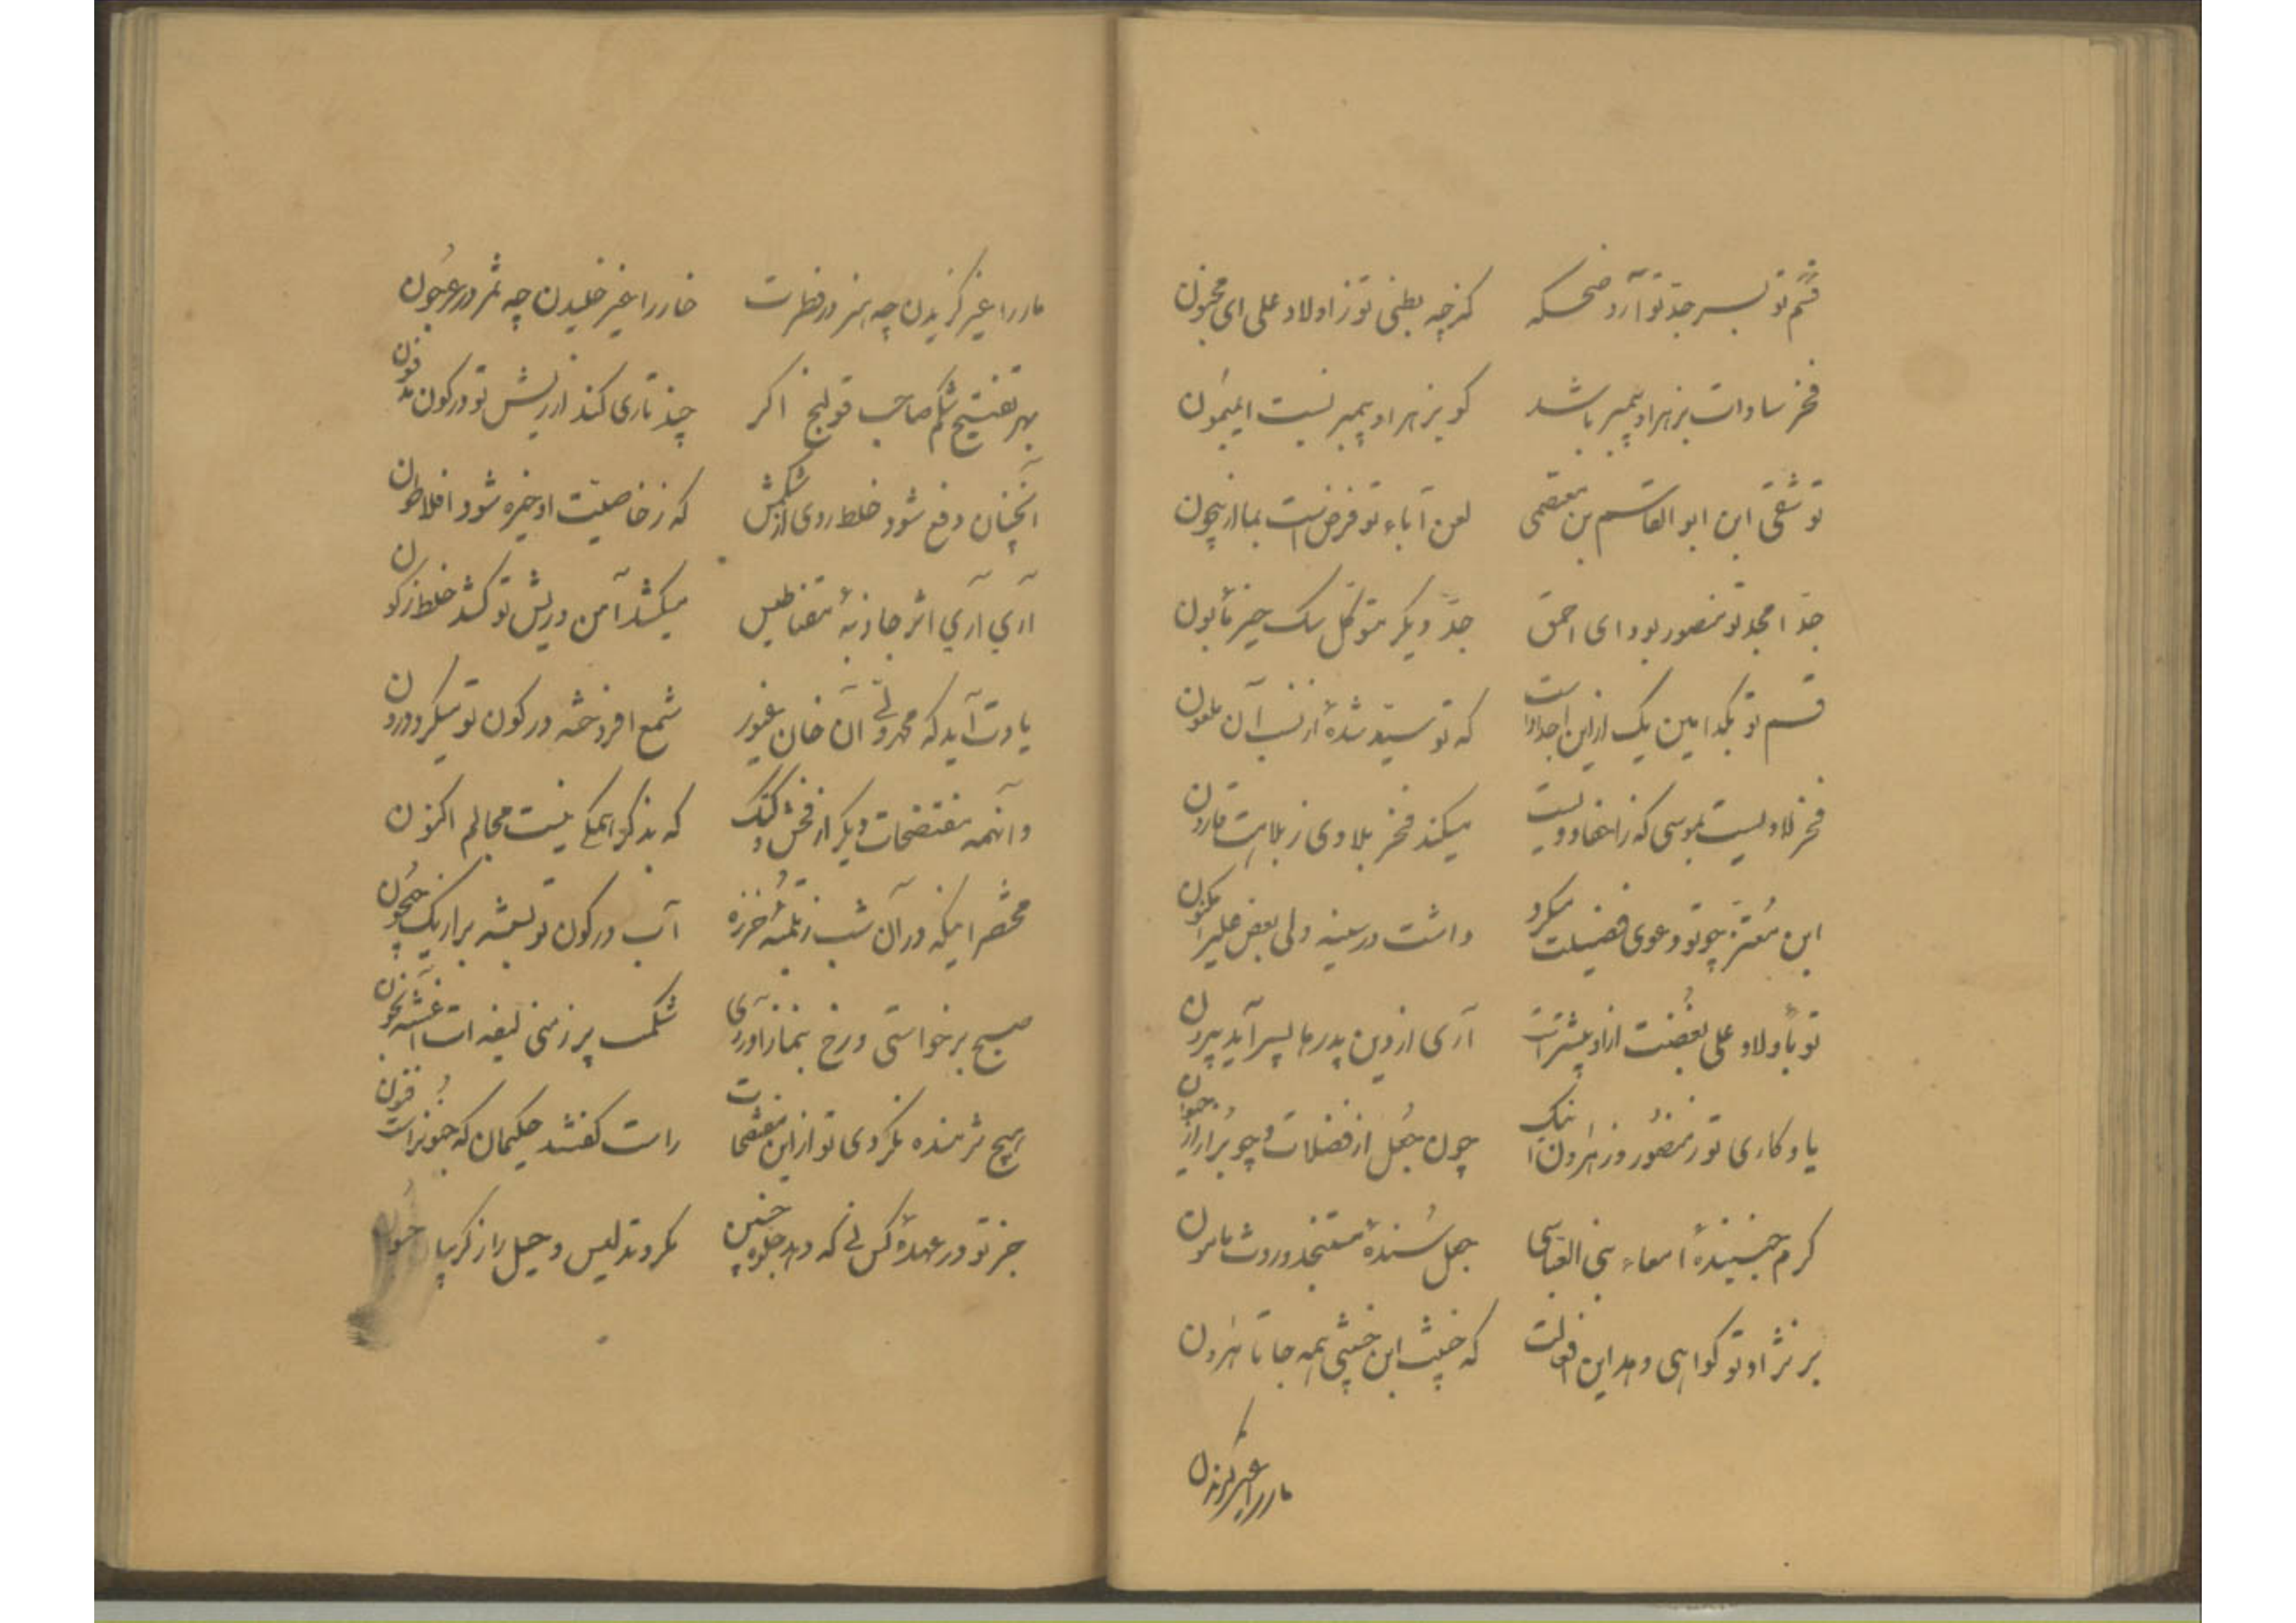 قسم تو بسر جد تو آرد ضحکه کز چه بطنی تو ز اولاد علی ای مجنون
فخر سادات بزهرا و پیمبر باشد کو بزهرا و پیمبر نسبت ای میمون
تو شقی ابن ابو القاسم بن معتصمی لعن آباء تو فرض است بما از بیچون
جد امجد تو منصور بود ای احمق جد دیگر متوکل سک حیز مأبون
قسم تو بکدامین یک ازین اجداد است که تو سید شدهٔ از نسب آن ملعون
فخر لاویست بموسی که ز احفاد ویست میکند فخر بلاوی ز بلاهت قارون
ابن معتز چو تو دعوی فضیلت میکرد داشت در سینه ولی بغض علی را مکنون
تو بأولاد علی بغضت ازاو بیشتر است آری از دین پدرها پسر آید بیرون
یادکاری تو ز منصور و ز هرون اینک چون جعل از فضلات و چو براز از
کرم جنبندهٔ امعاء بنی العباسی جعل سندهٔ مستنجد و روث مامون
بر نژاد تو کواهی دهد این افعالت که خبیث ابن خبیثی همه جا تا هرون
مار را غیر کزیدن
مار را غیر کزیدن چه هنر در فطرت خار را غیر خلیدن چه ثمر در عرجون
بهر تفتیح شکم صاحب قولنج اکر چند تاری کند از ریش تو در کون مدفون
آنچنان دفع شود خلط ردی از شکمش که ز خاصیت او خیره شود افلاطون
آری آری اثر جاذبهٔ مقناطیس میکشد آهن و ریش تو کشد خلط ز کون
یادت آید که محمدولی آن خان غیور شمع افروخته در کون تو میکرد درون
وانهمه مفتضحات دیکر از فحش و کتک که بذکر همکی نیست مجالم اکنون
مختصر اینکه در آن شب ز تلمبهٔ خرزه آب در کون تو بسته برار یک جیحون
صبح برخواستی و رخ بنماز آوردی شکمت پر ز منی لیفه ات آغشته بخون
هیچ شرمنده نکردی تو از این مفتضحات راست کفتند حکیمان که جنونراست فنون
جز تو در عهدهٔ کس نی که دهد جلوه چنین مکر و تدلیس و حیل را ز کریبا